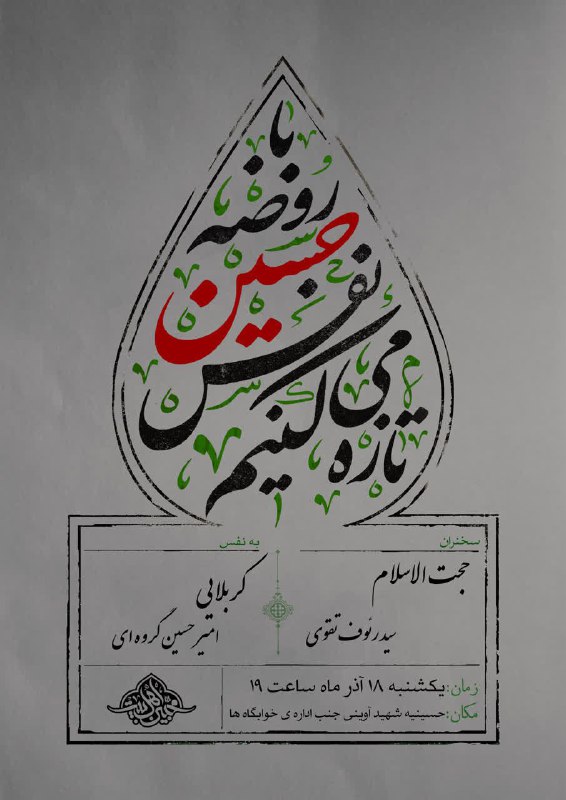 با
روضه
حسین
نفس
تازه می کنیم
سخنران
حجت الاسلام
سید رئوف تقوی
به نفس
کربلایی
امیرحسین گروه ای
زمان: یکشنبه ۱۸ آذر ماه ساعت ۱۹
مکان: حسینیه شهید آوینی جنب اداره ی خوابگاه ها